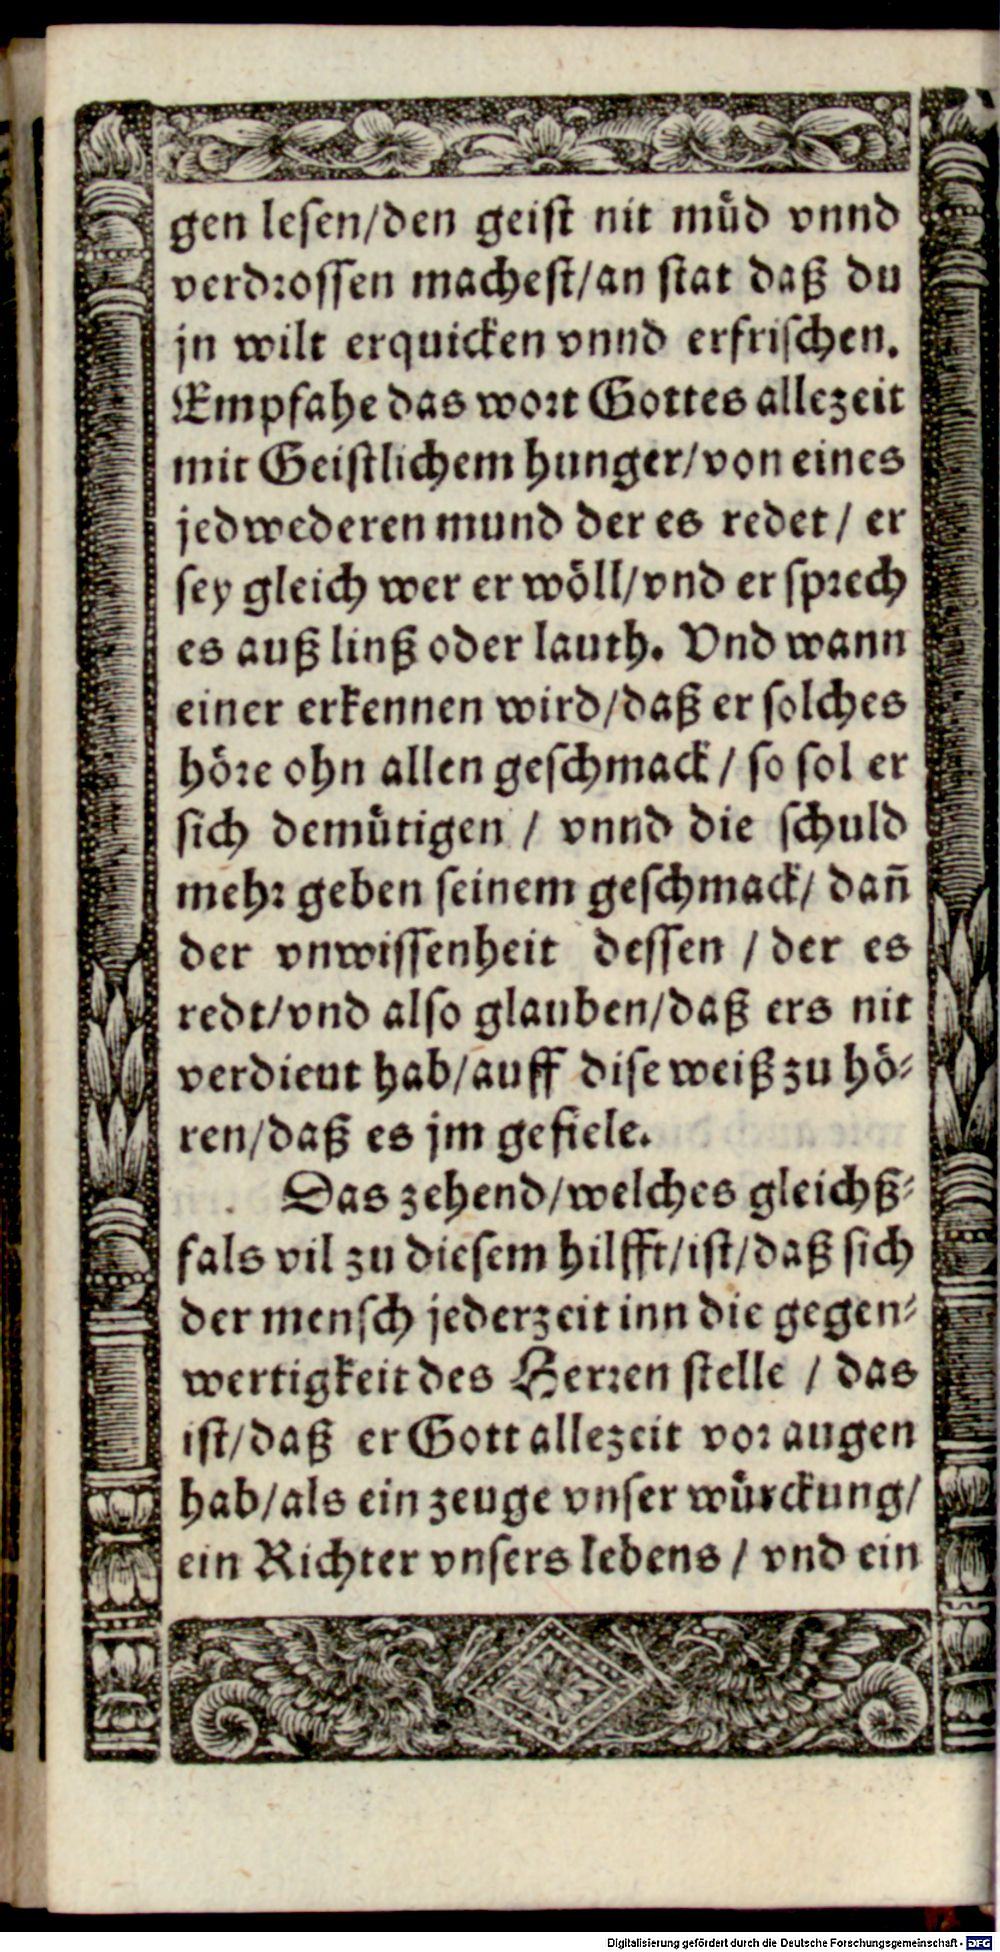 gen lesen/den geist nit müd vnnd
verdrossen machest/an stat daß du
jn wilt erquicken vnnd erfrischen.
Empfahe das wort Gottes allezeit
mit Geistlichem hunger/von eines
jedwederen mund der es redet / er
sey gleich wer er wöll/vnd er sprech
es auß linß oder lauth. Vnd wann
einer erkennen wird/daß er solches
höre ohn allen geschmack / so sol er
sich demütigen / vnnd die schuld
mehr geben seinem geschmack/ dañ
der vnwissenheit dessen / der es
redt/vnd also glauben/daß ers nit
verdient hab/auff dise weiß zu hö-
ren/daß es jm gefiele.
Das zehend/welches gleichß-
fals vil zu diesem hilfft/ist/daß sich
der mensch jederzeit inn die gegen-
wertigkeit des Herren stelle / das
ist/daß er Gott allezeit vor augen
hab/als ein zeuge vnser würckung/
ein Richter vnsers lebens / vnd ein
Digitalisierung gefördert durch die Deutsche Forschungsgemeinschaft - DFG